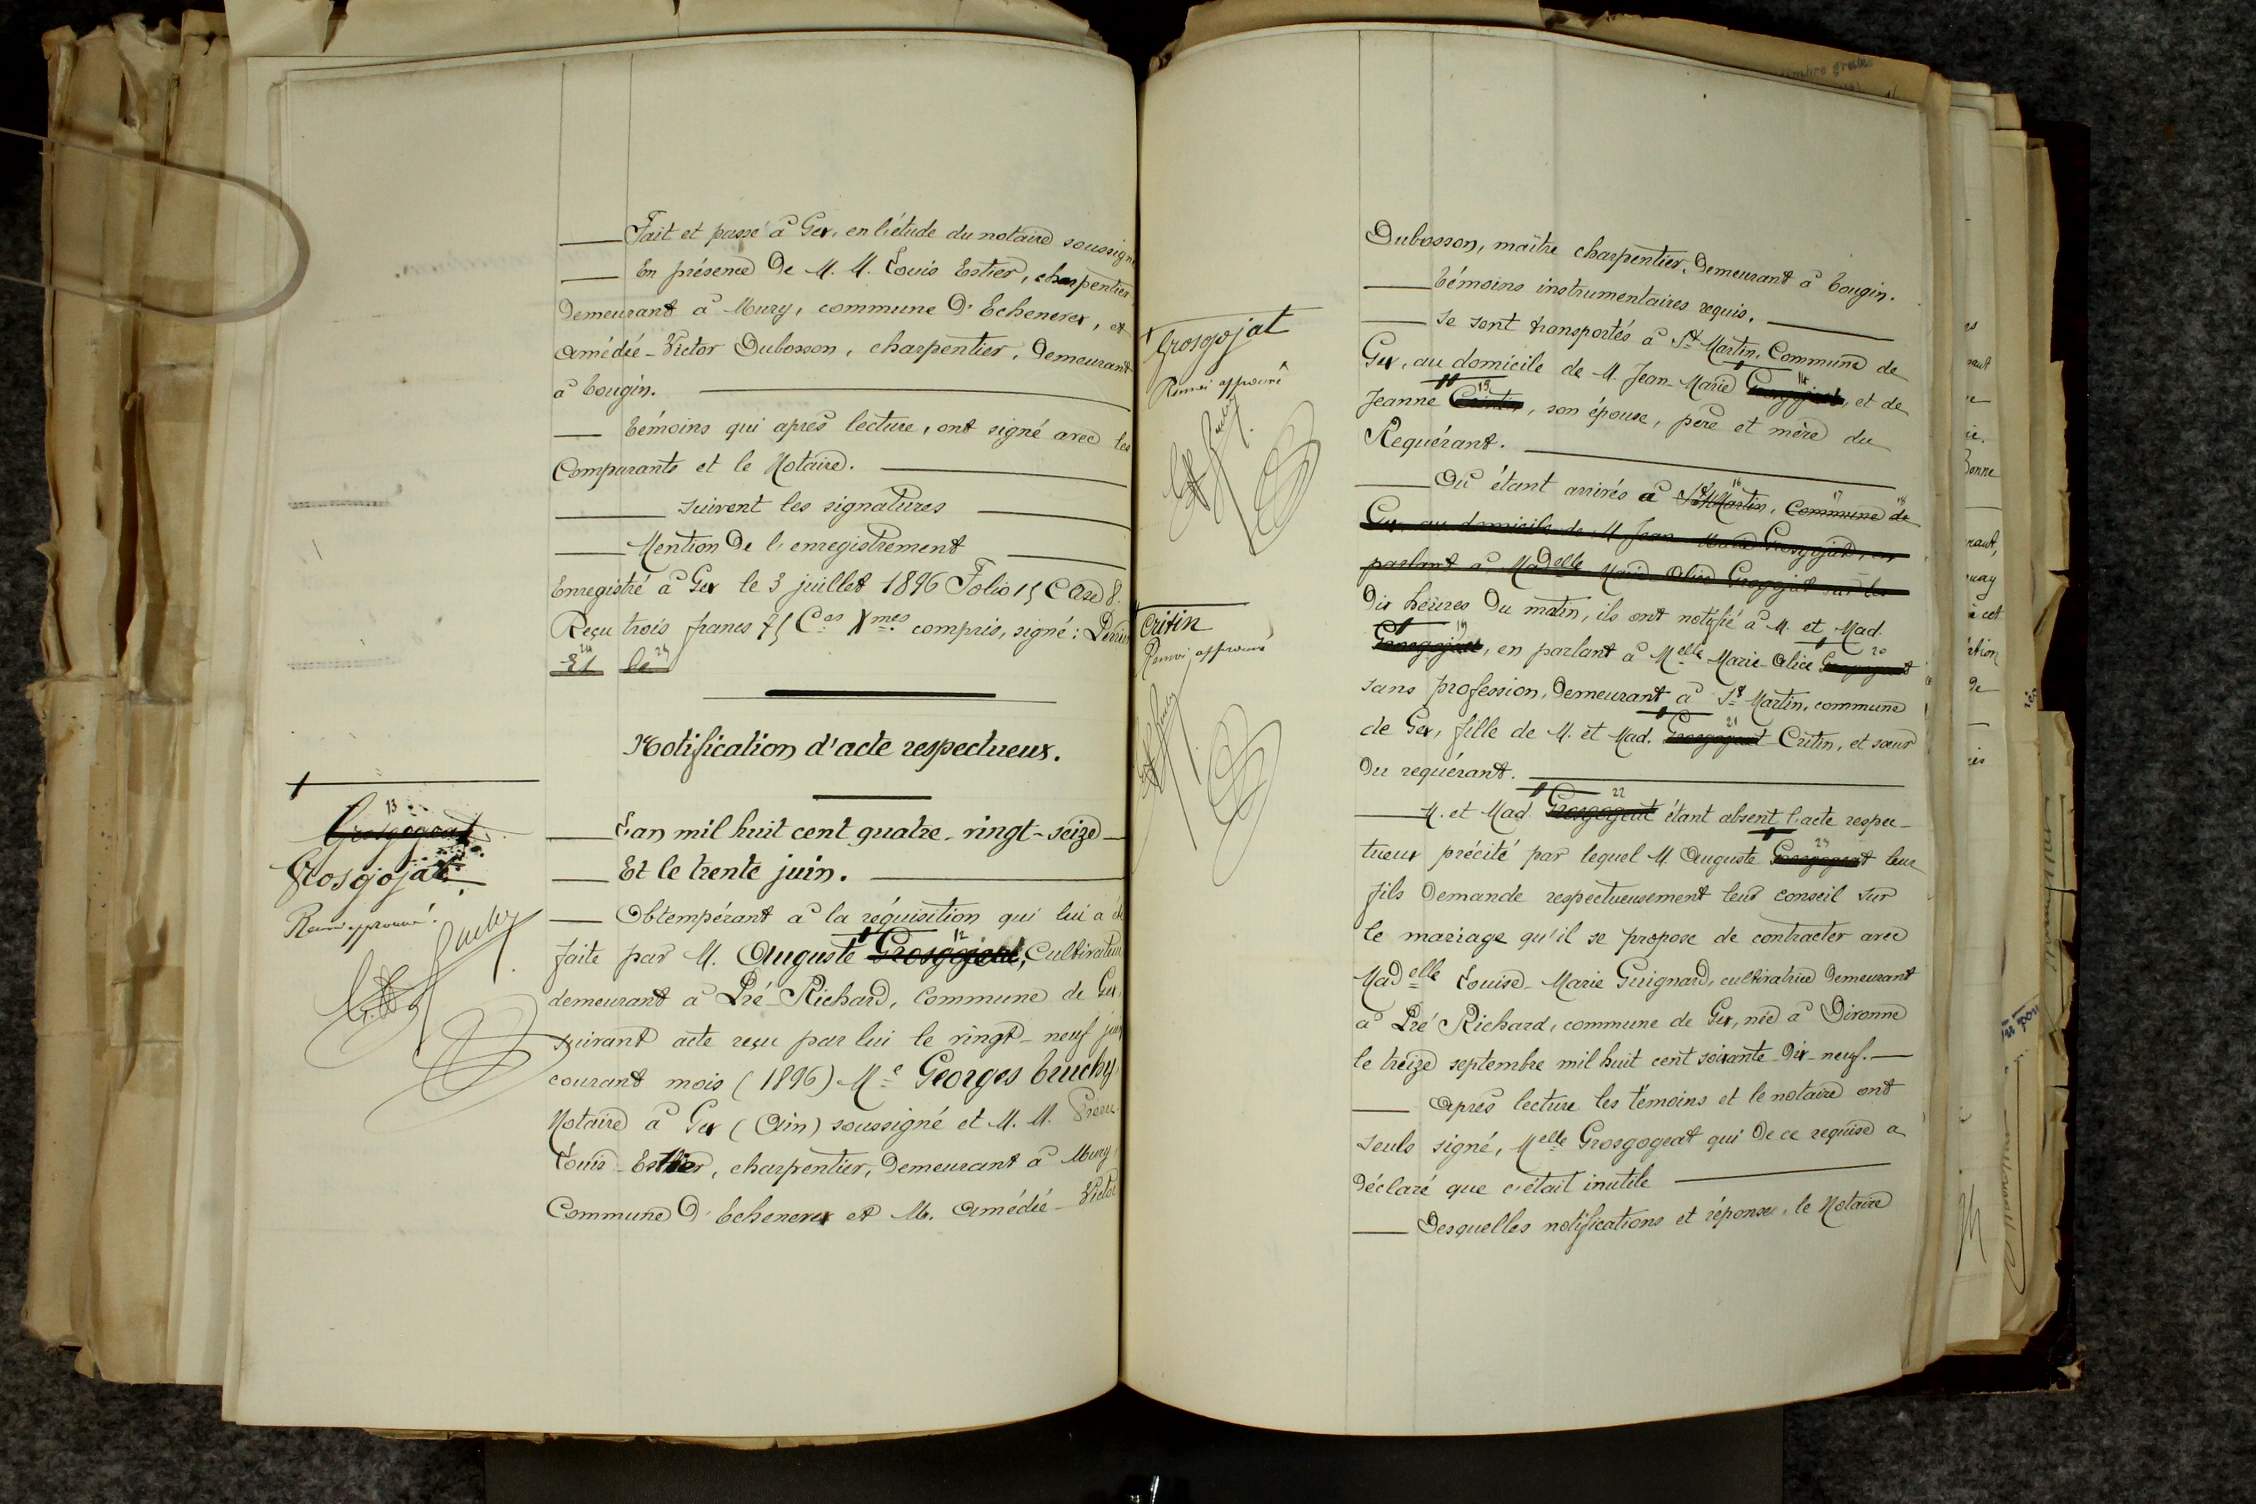 Fait et passé à Gex, en l'étude du notaire soussigné
En présence de M. M. Louis Estier, charpentier
demeurant à Mury, commune d'Echenevex, et
Amédée-Victor Dubosson, charpentier, demeurant
à Tougin.
Témoins qui après lecture, ont signé avec les
Comparants et le Notaire.
Suivent les signatures
Mention de l'enregistrement
Enregistré à Gex le 3 juillet 1896 Folio 15 Case 8.
Reçu trois francs 75 Ces Xmes compris, signé:
24 25
Et le
Notification d'acte respectueux.
L'an mil huit cent quatre-vingt-seize
Et le trente juin.
Obtempérant à la réquisition qui lui a été
12
faite par M. Auguste Grosgogeat, Cultivateur
demeurant à Pré-Richard, commune de Gex,
suivant acte reçu par lui le vingt-neuf juin
courant mois (1896) Me Georges Truchy
Notaire à Gex (Ain) soussigné et M. M. Pierre
Louis Esthier, charpentier, demeurant à Mury
Commune d'Echenevex et M. Amédée-Victor
13
Grosgogeat
Grosgojat
Renvoi approuvé.
Grosgojat
Renvoi approuvé
Critin
Renvoi approuvé
Dubosson, maître charpentier, demeurant à Tougin.
Témoins instrumentaires requis.
Se sont transportés à St Martin, Commune de
14
Gex, au domicile de M. Jean-Marie Grosgogeat, et de
15
Jeanne, son épouse, père et mère du
Requérant.
16 17 18
Où étant arrivés à St Martin, Commune de
Gex, au domicile de M. Jean Marie Grosgojat, en
parlant à Madelle Marie Alice Grosgojat sur les
Dix heures du matin, ils ont notifié à M. et Mad.
19 20
Grosgogeat, en parlant à Melle Marie-Alice Grosgogeat
sans profession, demeurant à St Martin, commune
21
de Gex, fille de M. et Mad. Grosgogeat-Critin, et sœur
du requérant.
22
M. et Mad. Grosgogeat étant absent l'acte respec-
23
tueux précité par lequel M. Auguste Grosgogeat leur
fils demande respectueusement leur conseil sur
le mariage qu'il se propose de contracter avec
Madelle Louise-Marie Guignard, cultivatrice demeurant
à Pré Richard, commune de Gex, née à Divonne
le treize septembre mil huit cent soixante-dix-neuf.
Après lecture les témoins et le notaire ont
seuls signé, Melle Grosgogeat qui de ce requise a
déclaré que c'était inutile
Desquelles notifications et réponse, le Notaire